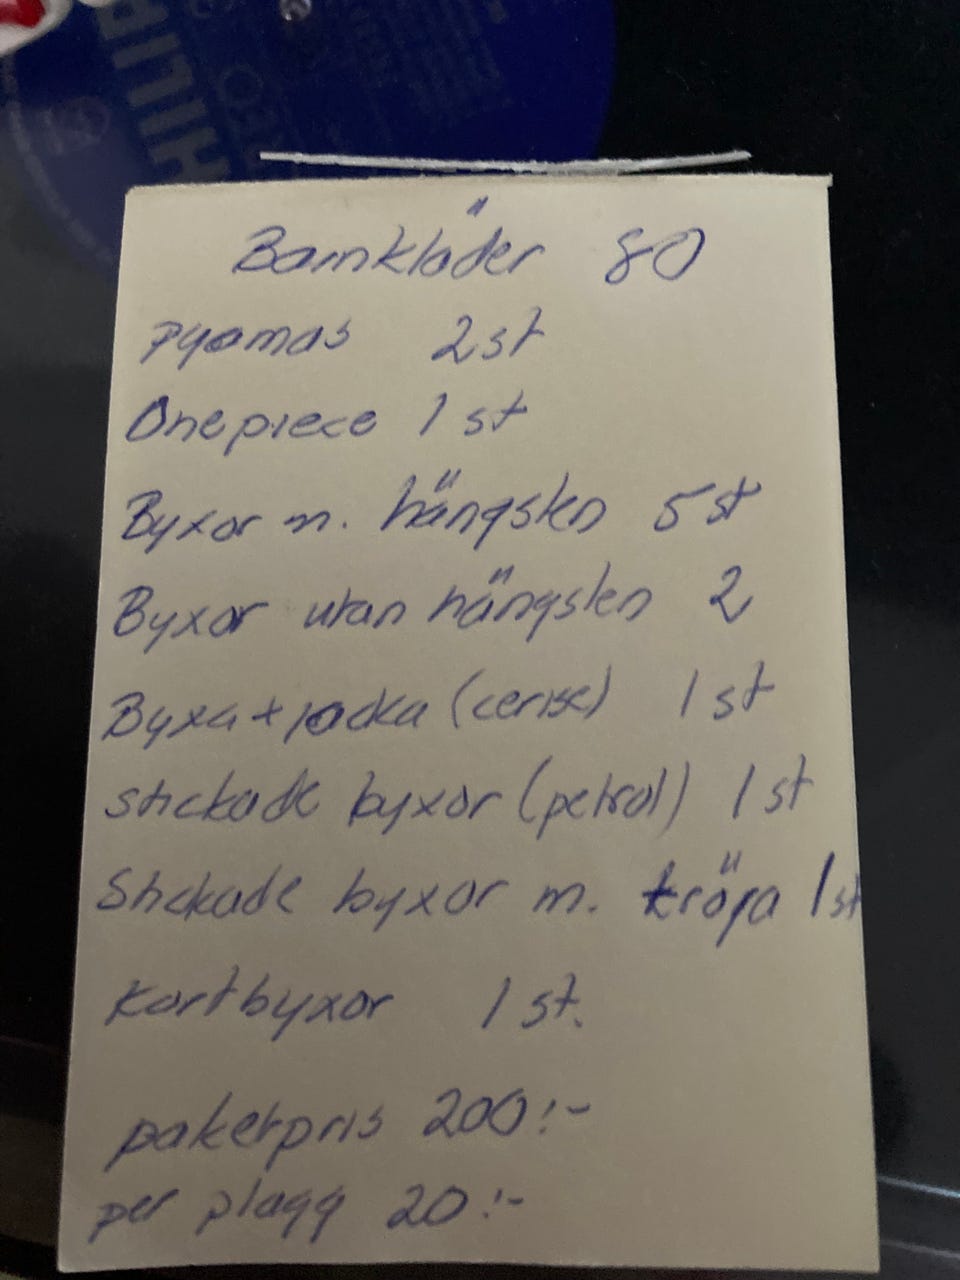 HILIP
Barnkläder 80
Pyamas 2st
Onepiece 1 st
Byxor m. hängslen 5 st
Byxor utan hängslen 2
Byxa + jacka (cerise) 1 st
stickade byxor (petrol) 1 st
Stickade byxor m. tröja 1 st
Kortbyxor 1 st.
paketpris 200:-
per plagg 20:-